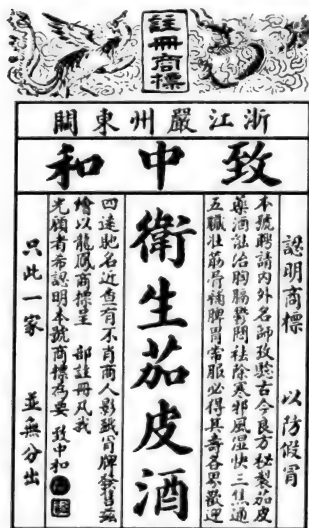 註冊商標
浙江嚴州東關
致中和
認明商標 以防假冒
本號聘請內外名師攷驗古今良方秘製茄皮
藥酒能治胸膈鬱悶祛除寒邪風濕快三焦通
五臟壯筋骨補脾胃常服必得其壽各界歡迎
衛生茄皮酒
四遠馳名近查有不肖商人影戤冒牌發售茲
繪以龍鳳商標呈 部註冊凡我
光顧者希認明本號商標為要 致中和
只此一家 並無分出